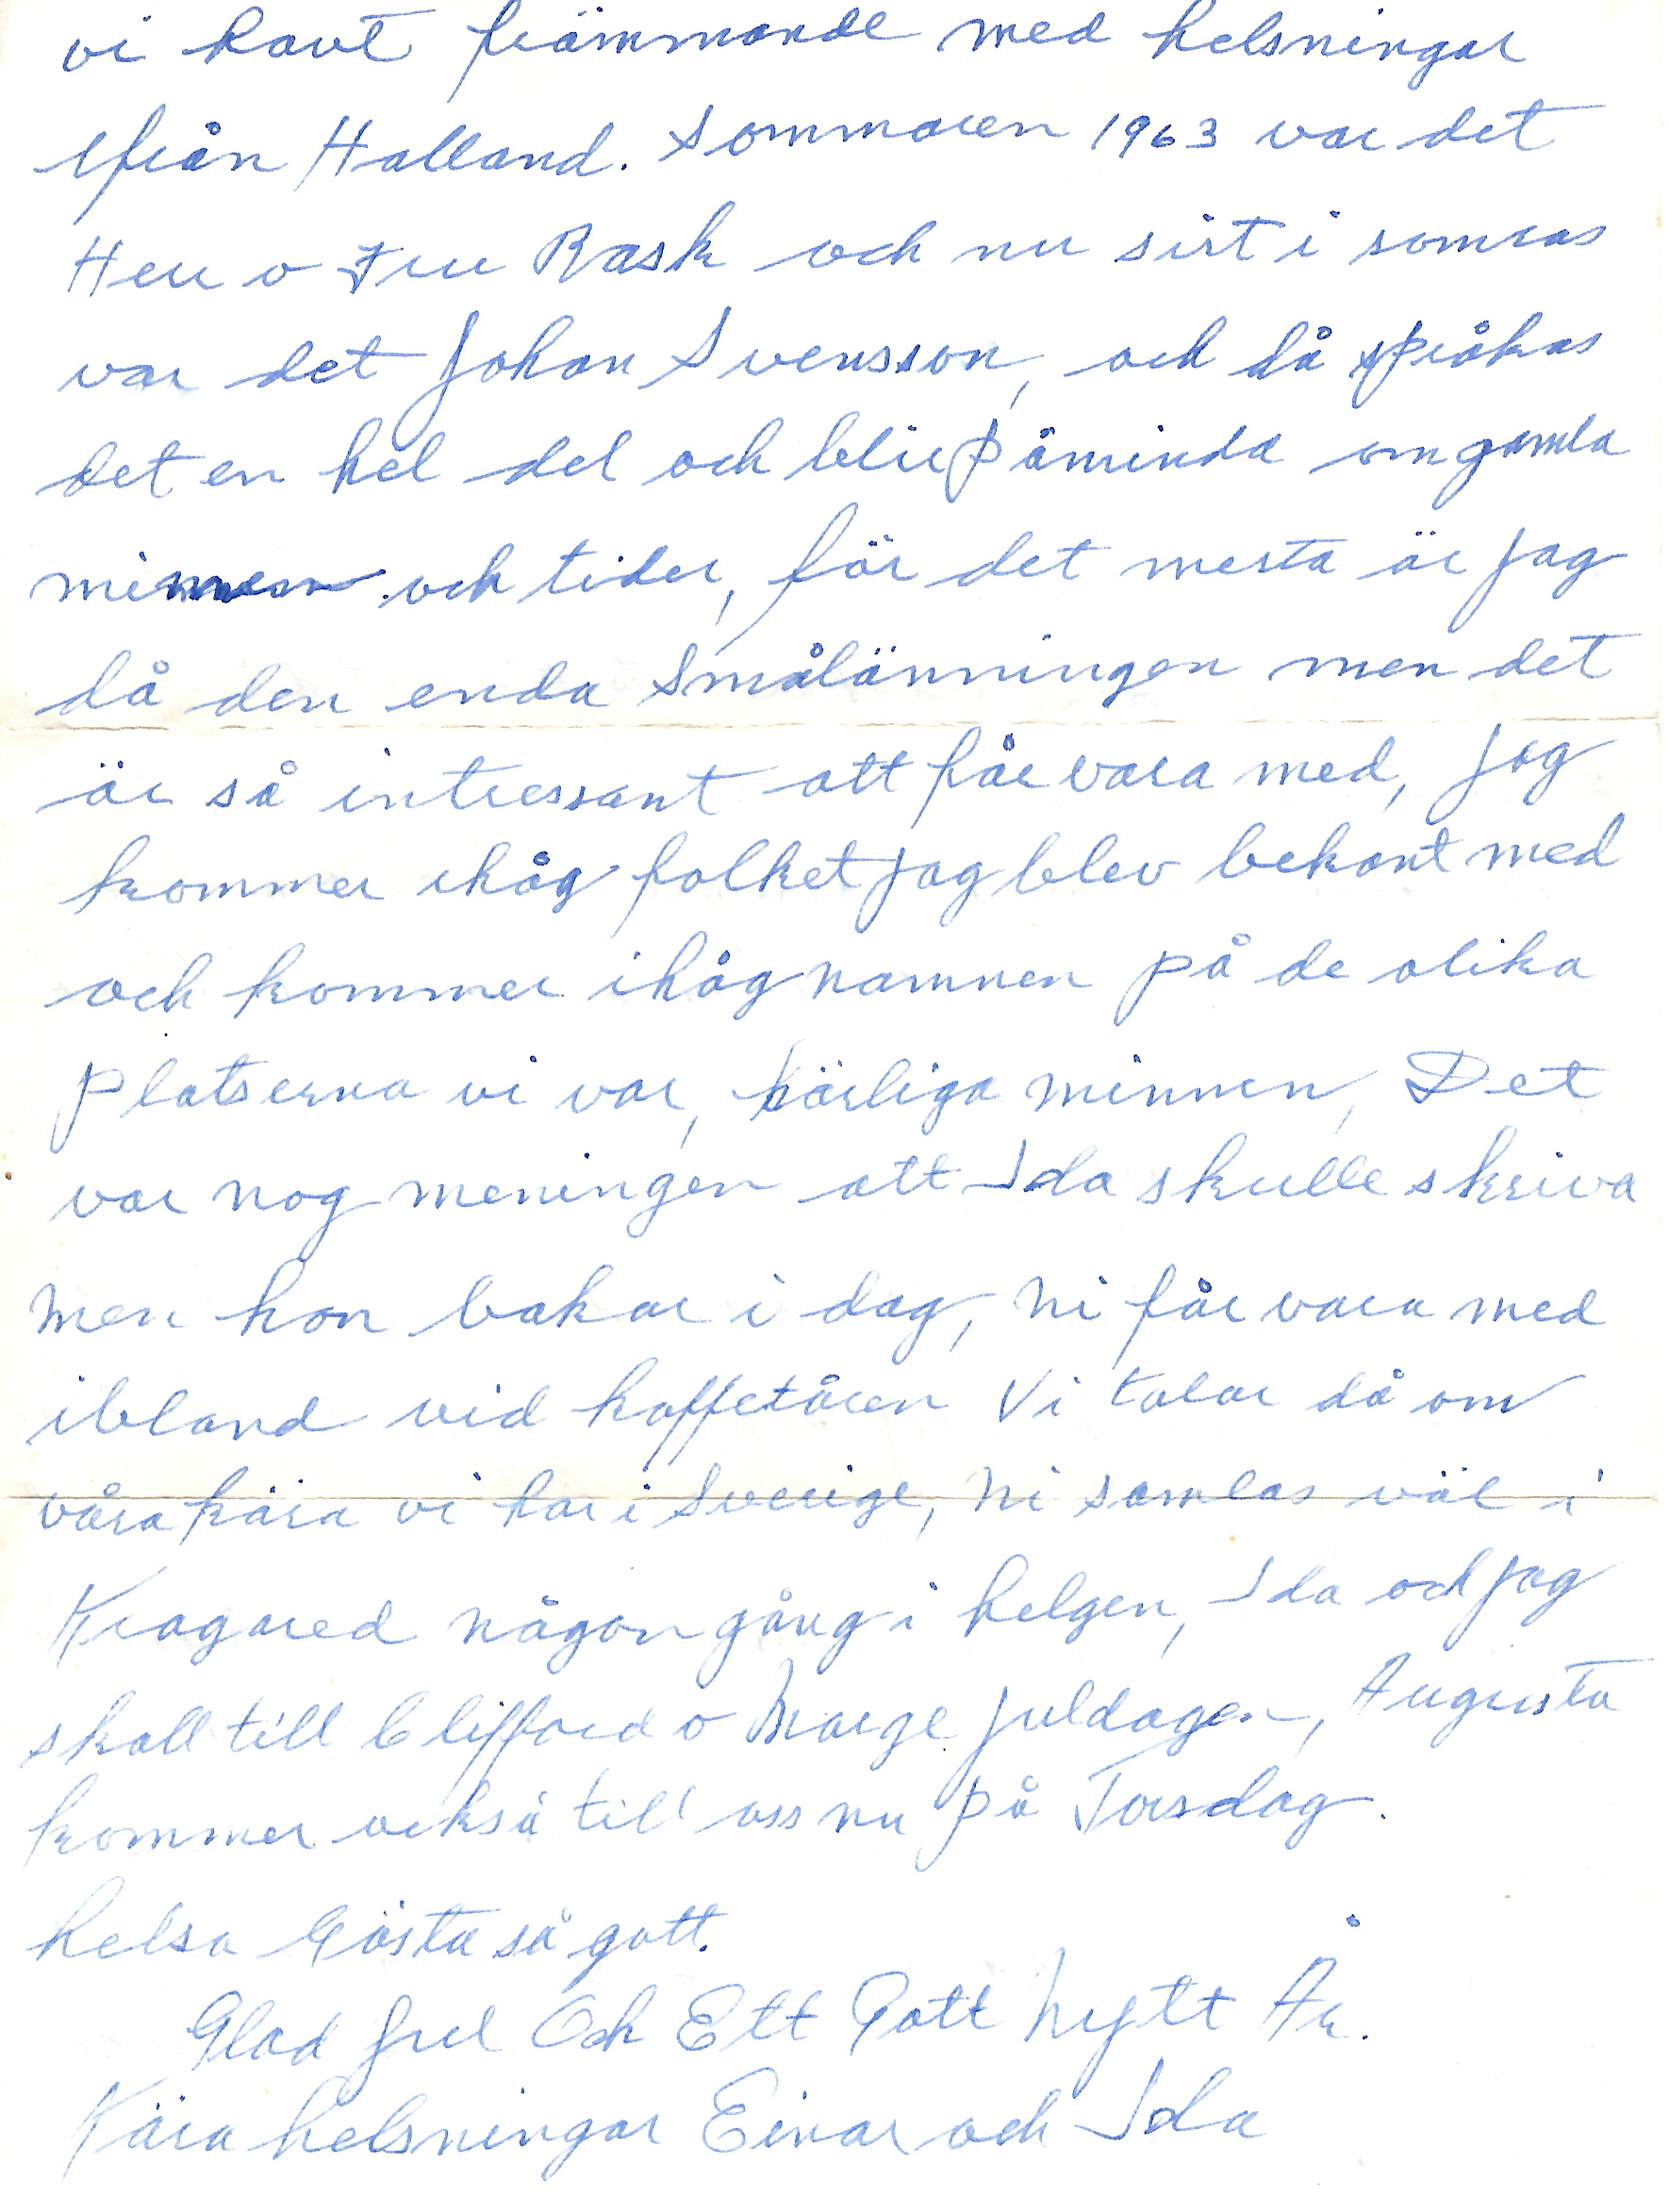 vi havt främmande med helsningar
ifrån Halland. Sommaren 1963 var det
Herr o Fru Rask och nu sist i somras
var det Johan Svensson, och då språkas
det en hel del och blir påminda om gamla
minnen och tider, för det mesta är jag
då den enda Smålänningen men det
är så intressant att får vara med, jag
kommer ihåg folket jag blev bekant med
och kommer ihåg namnen på de olika
platserna vi var, härliga minnen, Det
var nog meningen att Ida skulle skriva
men hon bakar i dag, ni får vara med
ibland vid kaffetåren Vi talar då om
våra kära vi har i Sverige, ni samlas väl i
Kragared någon gång i helgen, Ida och jag
skall till Clifford o Marge juldagen, Augusta
kommer också till oss nu på Torsdag.
helsa Gösta så gott.
Glad Jul Och Ett Gott Nytt År.
Kära helsningar Einar och Ida